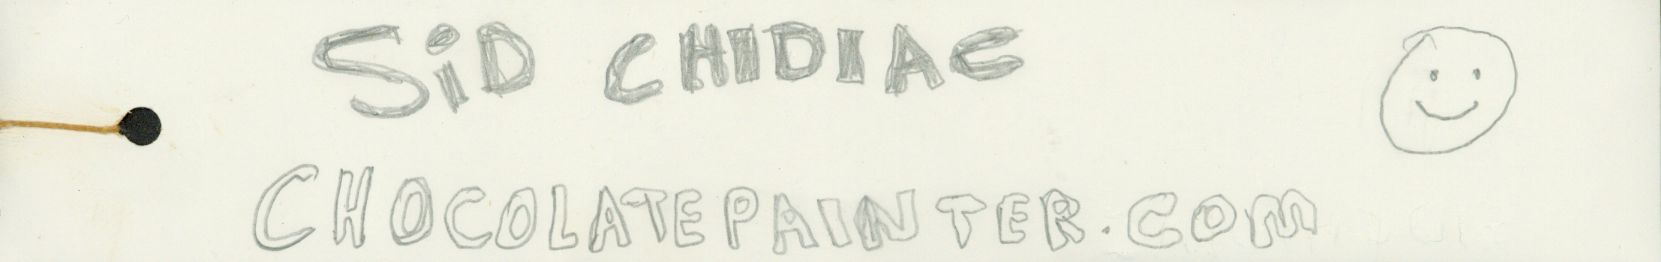 SiD CHIDIAC
CHOCOLATEPAINTER.COM